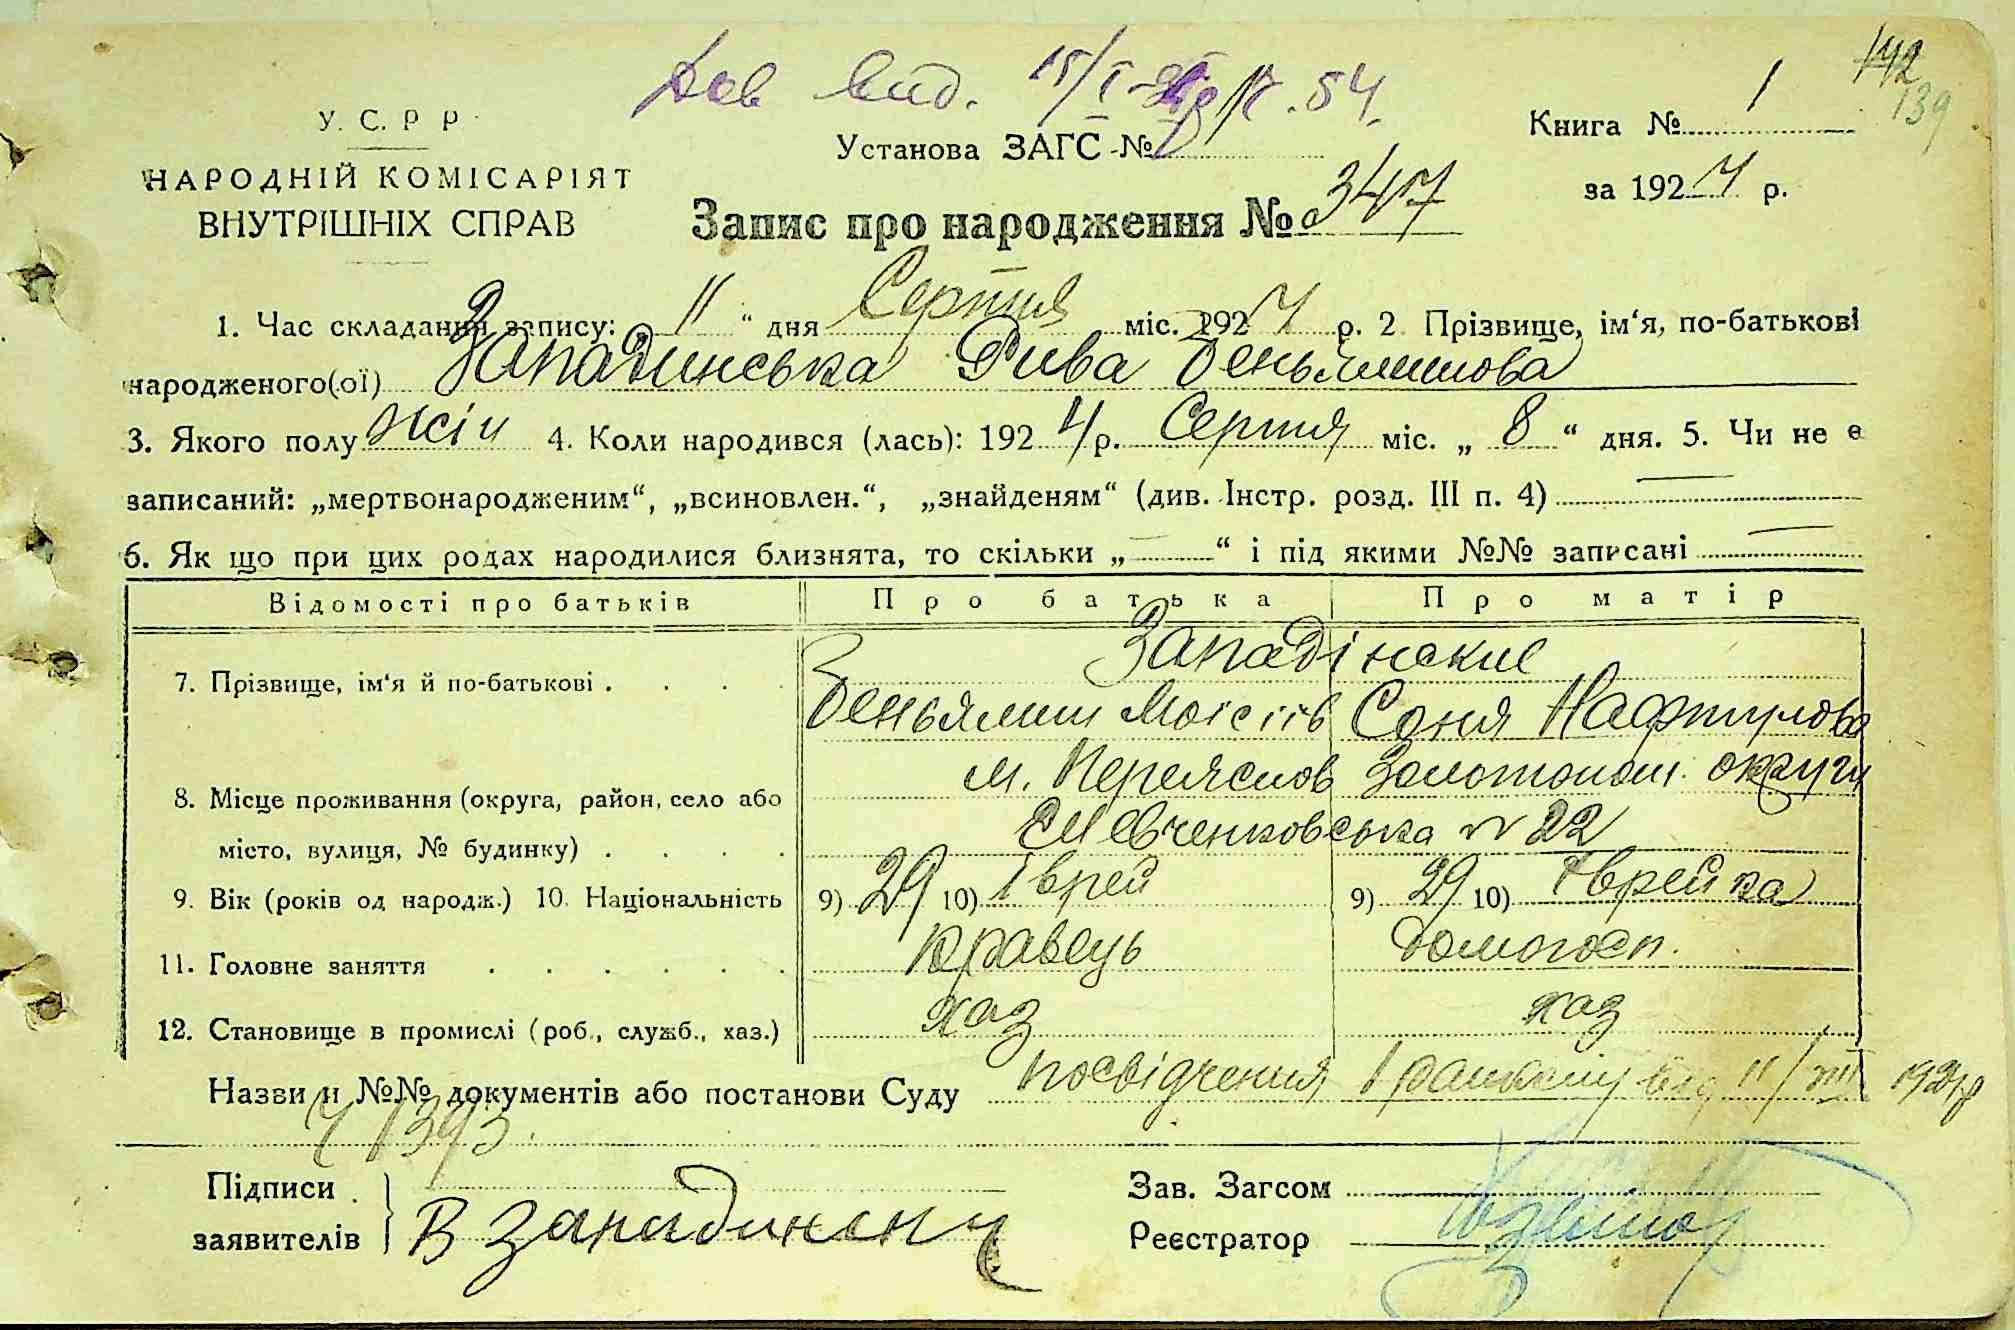 142
139
Дов вид. 15/I-
54.
У. С. Р Р
НАРОДНІЙ КОМІСАРІЯТ
ВНУТРІШНІХ СПРАВ
Установа ЗАГС №
Книга № 1
за 1924 р.
Запис про народження № 347
1. Час складання запису: 11 “ дня Серпня міс. 1924 р. 2 Прізвище, ім'я, по-батькові
народженого(ої) Западинська Рива Беньямінова
3. Якого полу жін 4. Коли народився (лась): 1924 р. Серпня міс. „ 8 “ дня. 5. Чи не є
записаний: „мертвонародженим“, „всиновлен.“, „знайденям“ (див. Інстр. розд. III п. 4)
6. Як що при цих родах народилися близнята, то скільки „ — “ і під якими №№ записані —
Відомості про батьків Про батька Про матір
Западінские
7. Прізвище, ім'я й по-батькові . . . . Беньямин Моісіїв Соня Нафтулова
м. Переяслов Золотонош. округи
8. Місце проживання (округа, район, село або
місто, вулиця, № будинку) . . . . Шевченковська № 22
9. Вік (років од народж.) 10. Національність 9) 29 10) Єврей 9) 29 10) Єврейка
11. Головне заняття . . . . . . Кравець домогосп.
12. Становище в промислі (роб., служб., хаз.) хаз хаз
Назви и №№ документів або постанови Суду посвідчения від 11/VIII 1924р
1393.
Підписи
заявителів
В Западинский
Зав. Загсом
Реєстратор